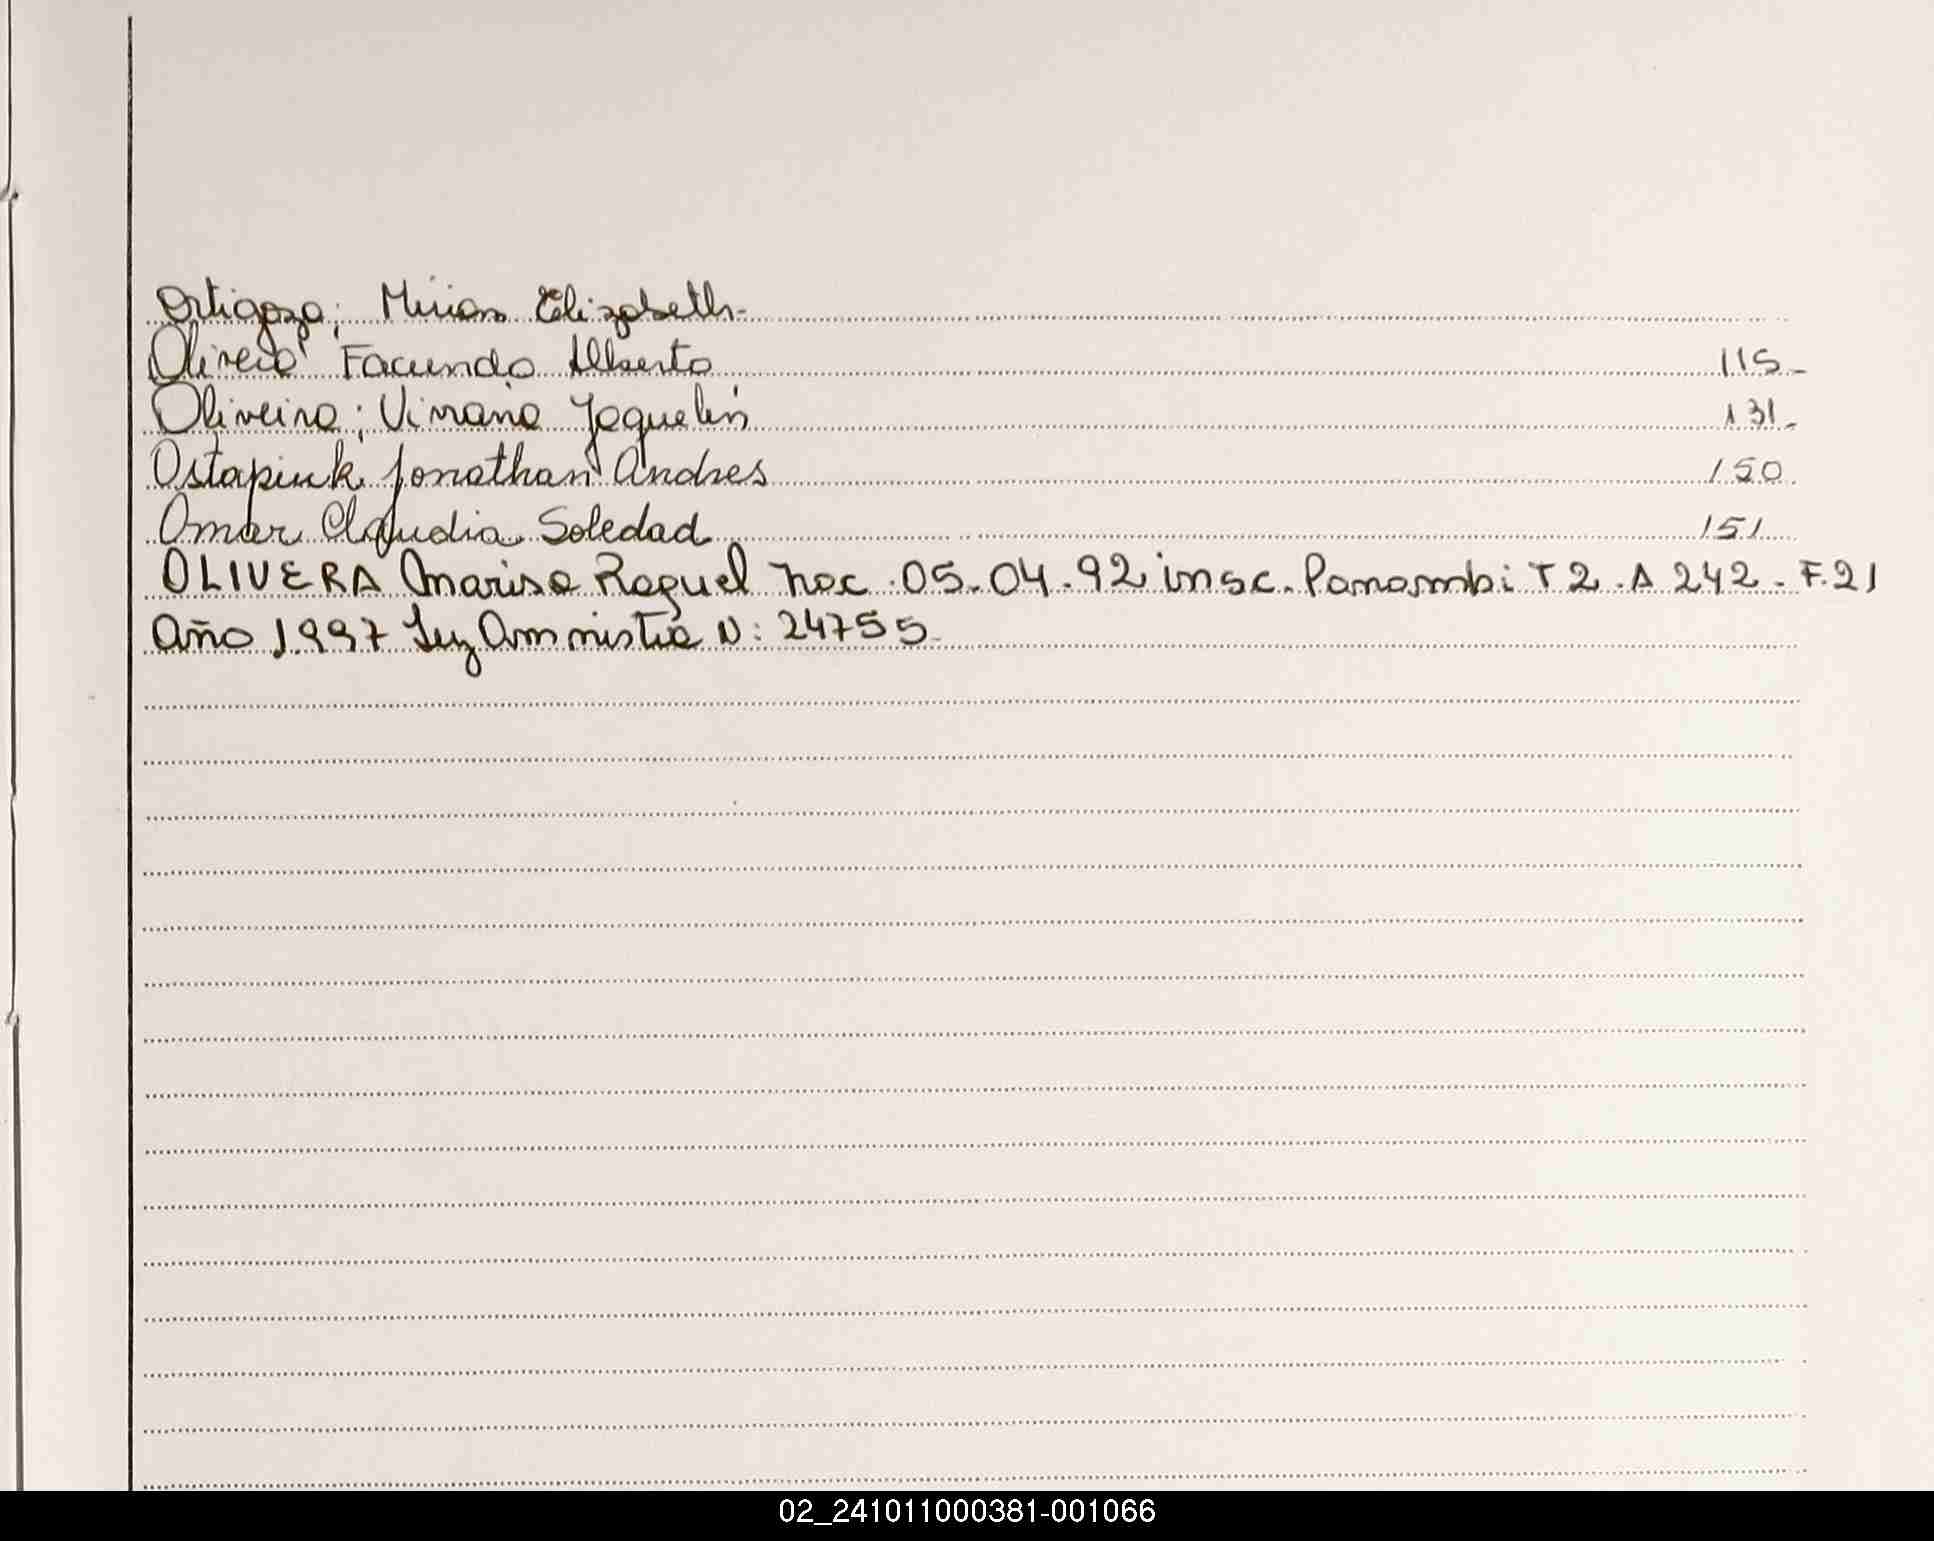 Ortigoza; Mirian Elizabeth-
Olivera Facundo Alberto 115-
Oliveira; Viviana Joquelin 131-
Ostapiuk Jonathan Andres 150
Omar Claudia Soledad 151
OLIVERA Marisa Raquel Nac. 05-04-92 insc. Panambi T2. A 242- F.21
Año 1997 Ley Amnistia N: 24755-
02_241011000381-001066